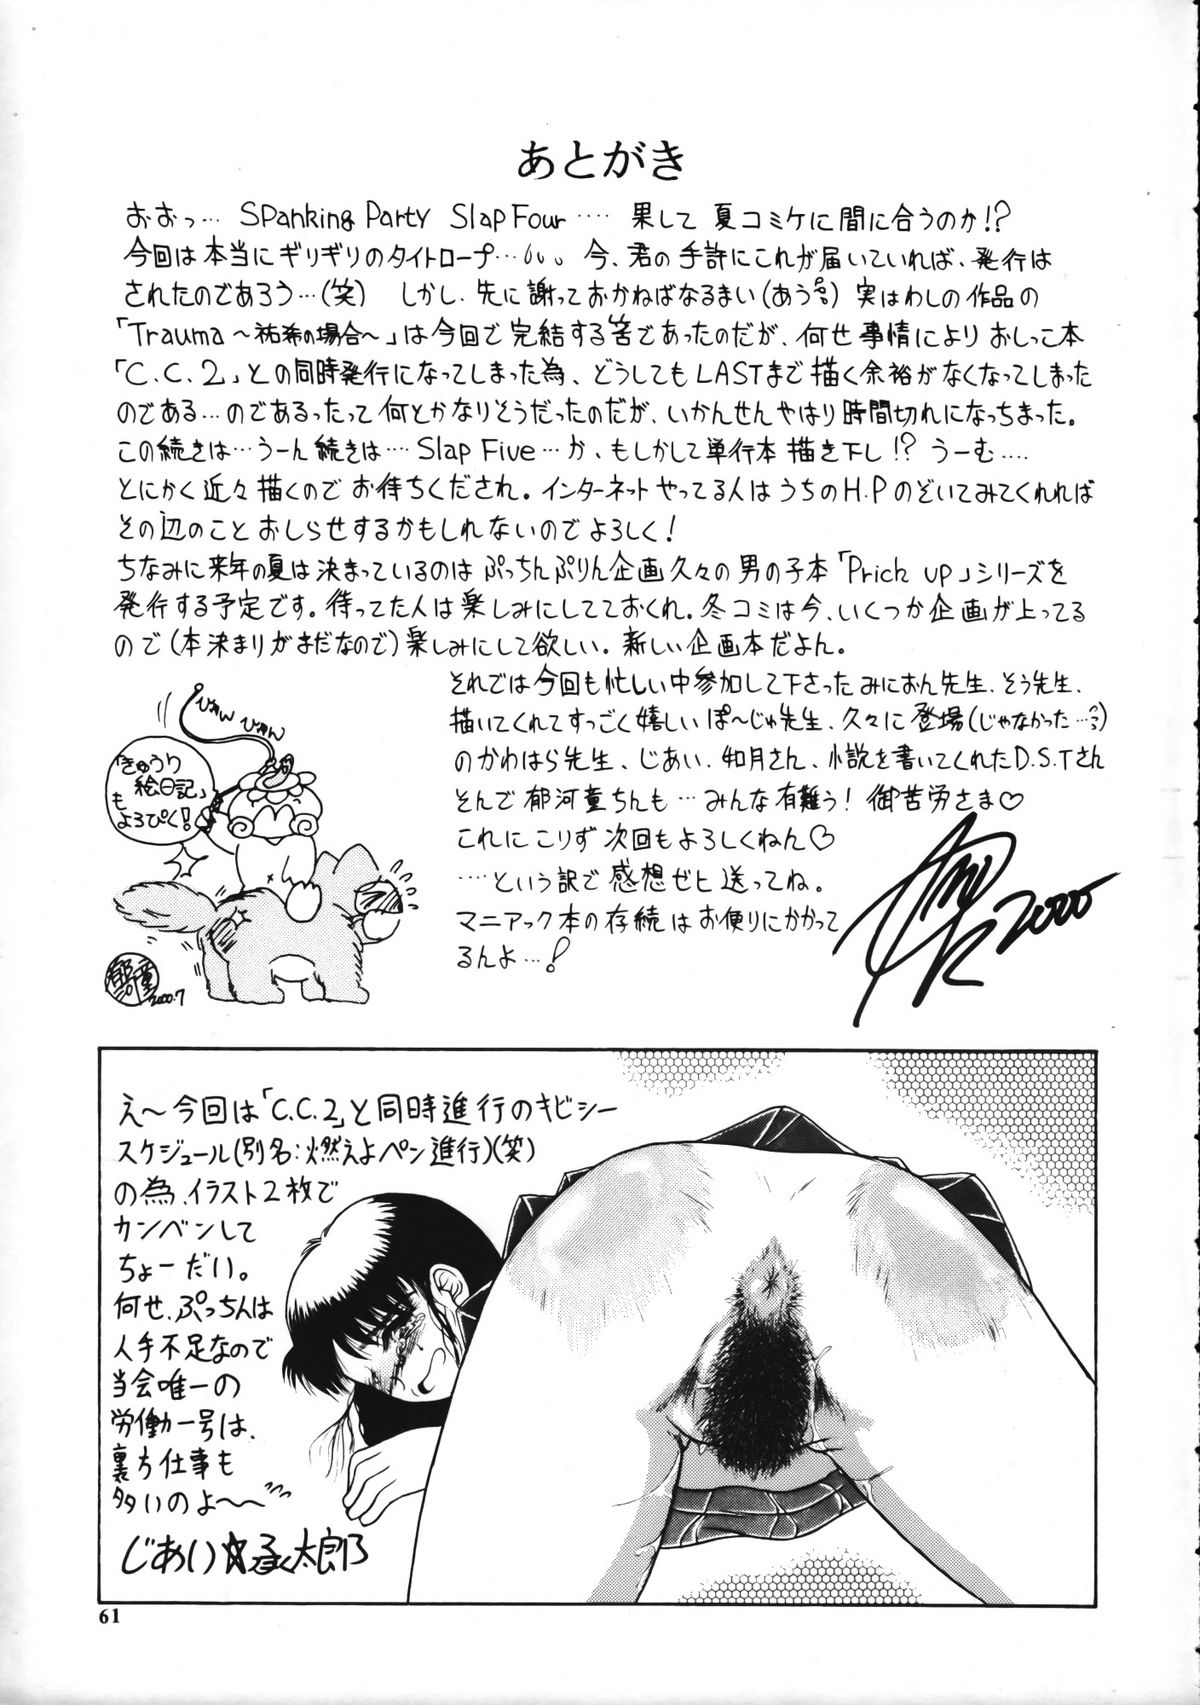 あとがき
おおっ… Spanking Party Slap Four …. 果して 夏コミケに間に合うのか!?
今回は本当にギリギリのタイトロープ… 今、君の手許にこれが届いていれば、発行は
されたのであろう…(笑) しかし、先に謝っておかねばなるまい(あうっ) 実はわしの作品の
「Trauma〜祐希の場合〜」は今回で完結する筈であったのだが、何せ事情により おしっこ本
「C.C.2」との同時発行になってしまった為、どうしてもLASTまで描く余裕がなくなってしまった
のである…のであるったって何とかなりそうだったのだが、いかんせんやはり時間切れになっちまった。
この続きは…うーん続きは…. Slap Five…か、もしかして単行本描き下し!? うーむ….
とにかく近々描くのでお待ちくだされ。インターネットやってる人はうちのH.Pのぞいてみてくれれば
その辺のことおしらせするかもしれないのでよろしく!
ちなみに来年の夏は決まっているのはぷっちんぷりん企画久々の男の子本「Prich up」シリーズを
発行する予定です。待ってた人は楽しみにしてておくれ。冬コミは今、いくつか企画が上ってる
ので(本決まりがまだなので)楽しみにして欲しい。新しい企画本だよん。
それでは今回も忙しい中参加して下さったみにおん先生、そう先生、
描いてくれてすっごく嬉しいぽ〜じゅ先生、久々に登場(じゃなかった…)
のかわはら先生、じあい、如月さん、小説を書いてくれたD.S.Tさん
そんで郁河童ちんも…みんな有難う! 御苦労さま♡
これにこりず次回もよろしくねん♡
….という訳で感想ぜヒ送ってね。
マニアック本の存続はお便りにかかって
るんよ…!
2000
ひゅん
ひゅん
「きゅうり
絵日記」
も
よろぴく!
郁河童
2000.7
え〜今回は「C.C.2」と同時進行のキビシー
スケジュール(別名:燃えよペン進行)(笑)
の為、イラスト2枚で
カンベンして
ちょーだい。
何せ、ぷっちんは
人手不足なので
当会唯一の
労働一号は、
裏方仕事も
多いのよ〜〜
じあい☆ 太郎
61